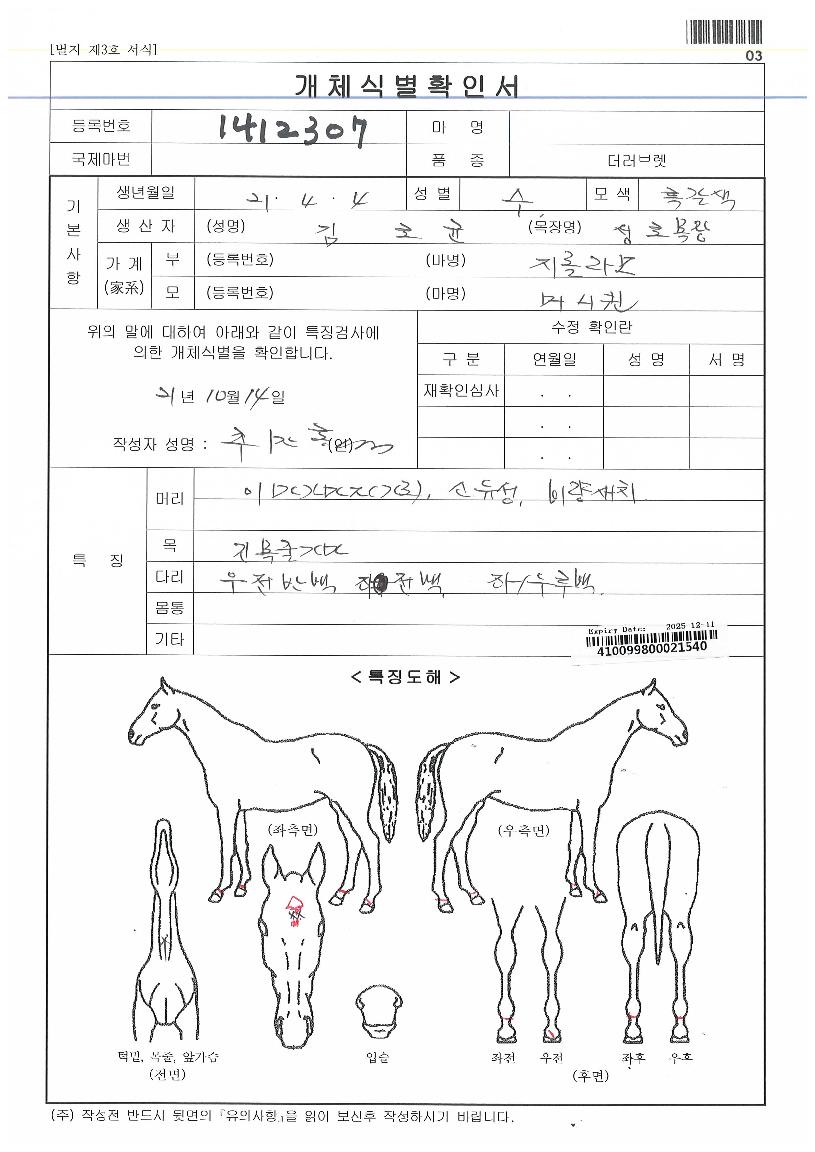 [별지 제3호 서식]
03
개체식별확인서
등록번호 1412307 마 명
국제마번 품 종 더러브렛
기본사항
생년월일 21. 4. 4 성 별 수 모 색 흑갈색
생 산 자 (성명) 김 호 균 (목장명) 성호목장
가 계 (家系) 부 (등록번호) (마명) 지롤라모
모 (등록번호) (마명) 머시퀸
위의 말에 대하여 아래와 같이 특징검사에
의한 개체식별을 확인합니다.
21년 10월 14일
작성자 성명 : (인)
수정 확인란
구 분 연월일 성 명 서 명
재확인심사 . .
. .
. .
특 징
머리
목
다리 우전반백 전백
몸통
기타
Expiry Date: 2025-12-11
410099800021540
< 특징도해 >
(좌측면) (우측면)
턱밑, 목줄, 앞가슴 입술 좌전 우전 좌후 우후
(전면) (후면)
(주) 작성전 반드시 뒷면의 『유의사항』을 읽어 보신후 작성하시기 바랍니다.